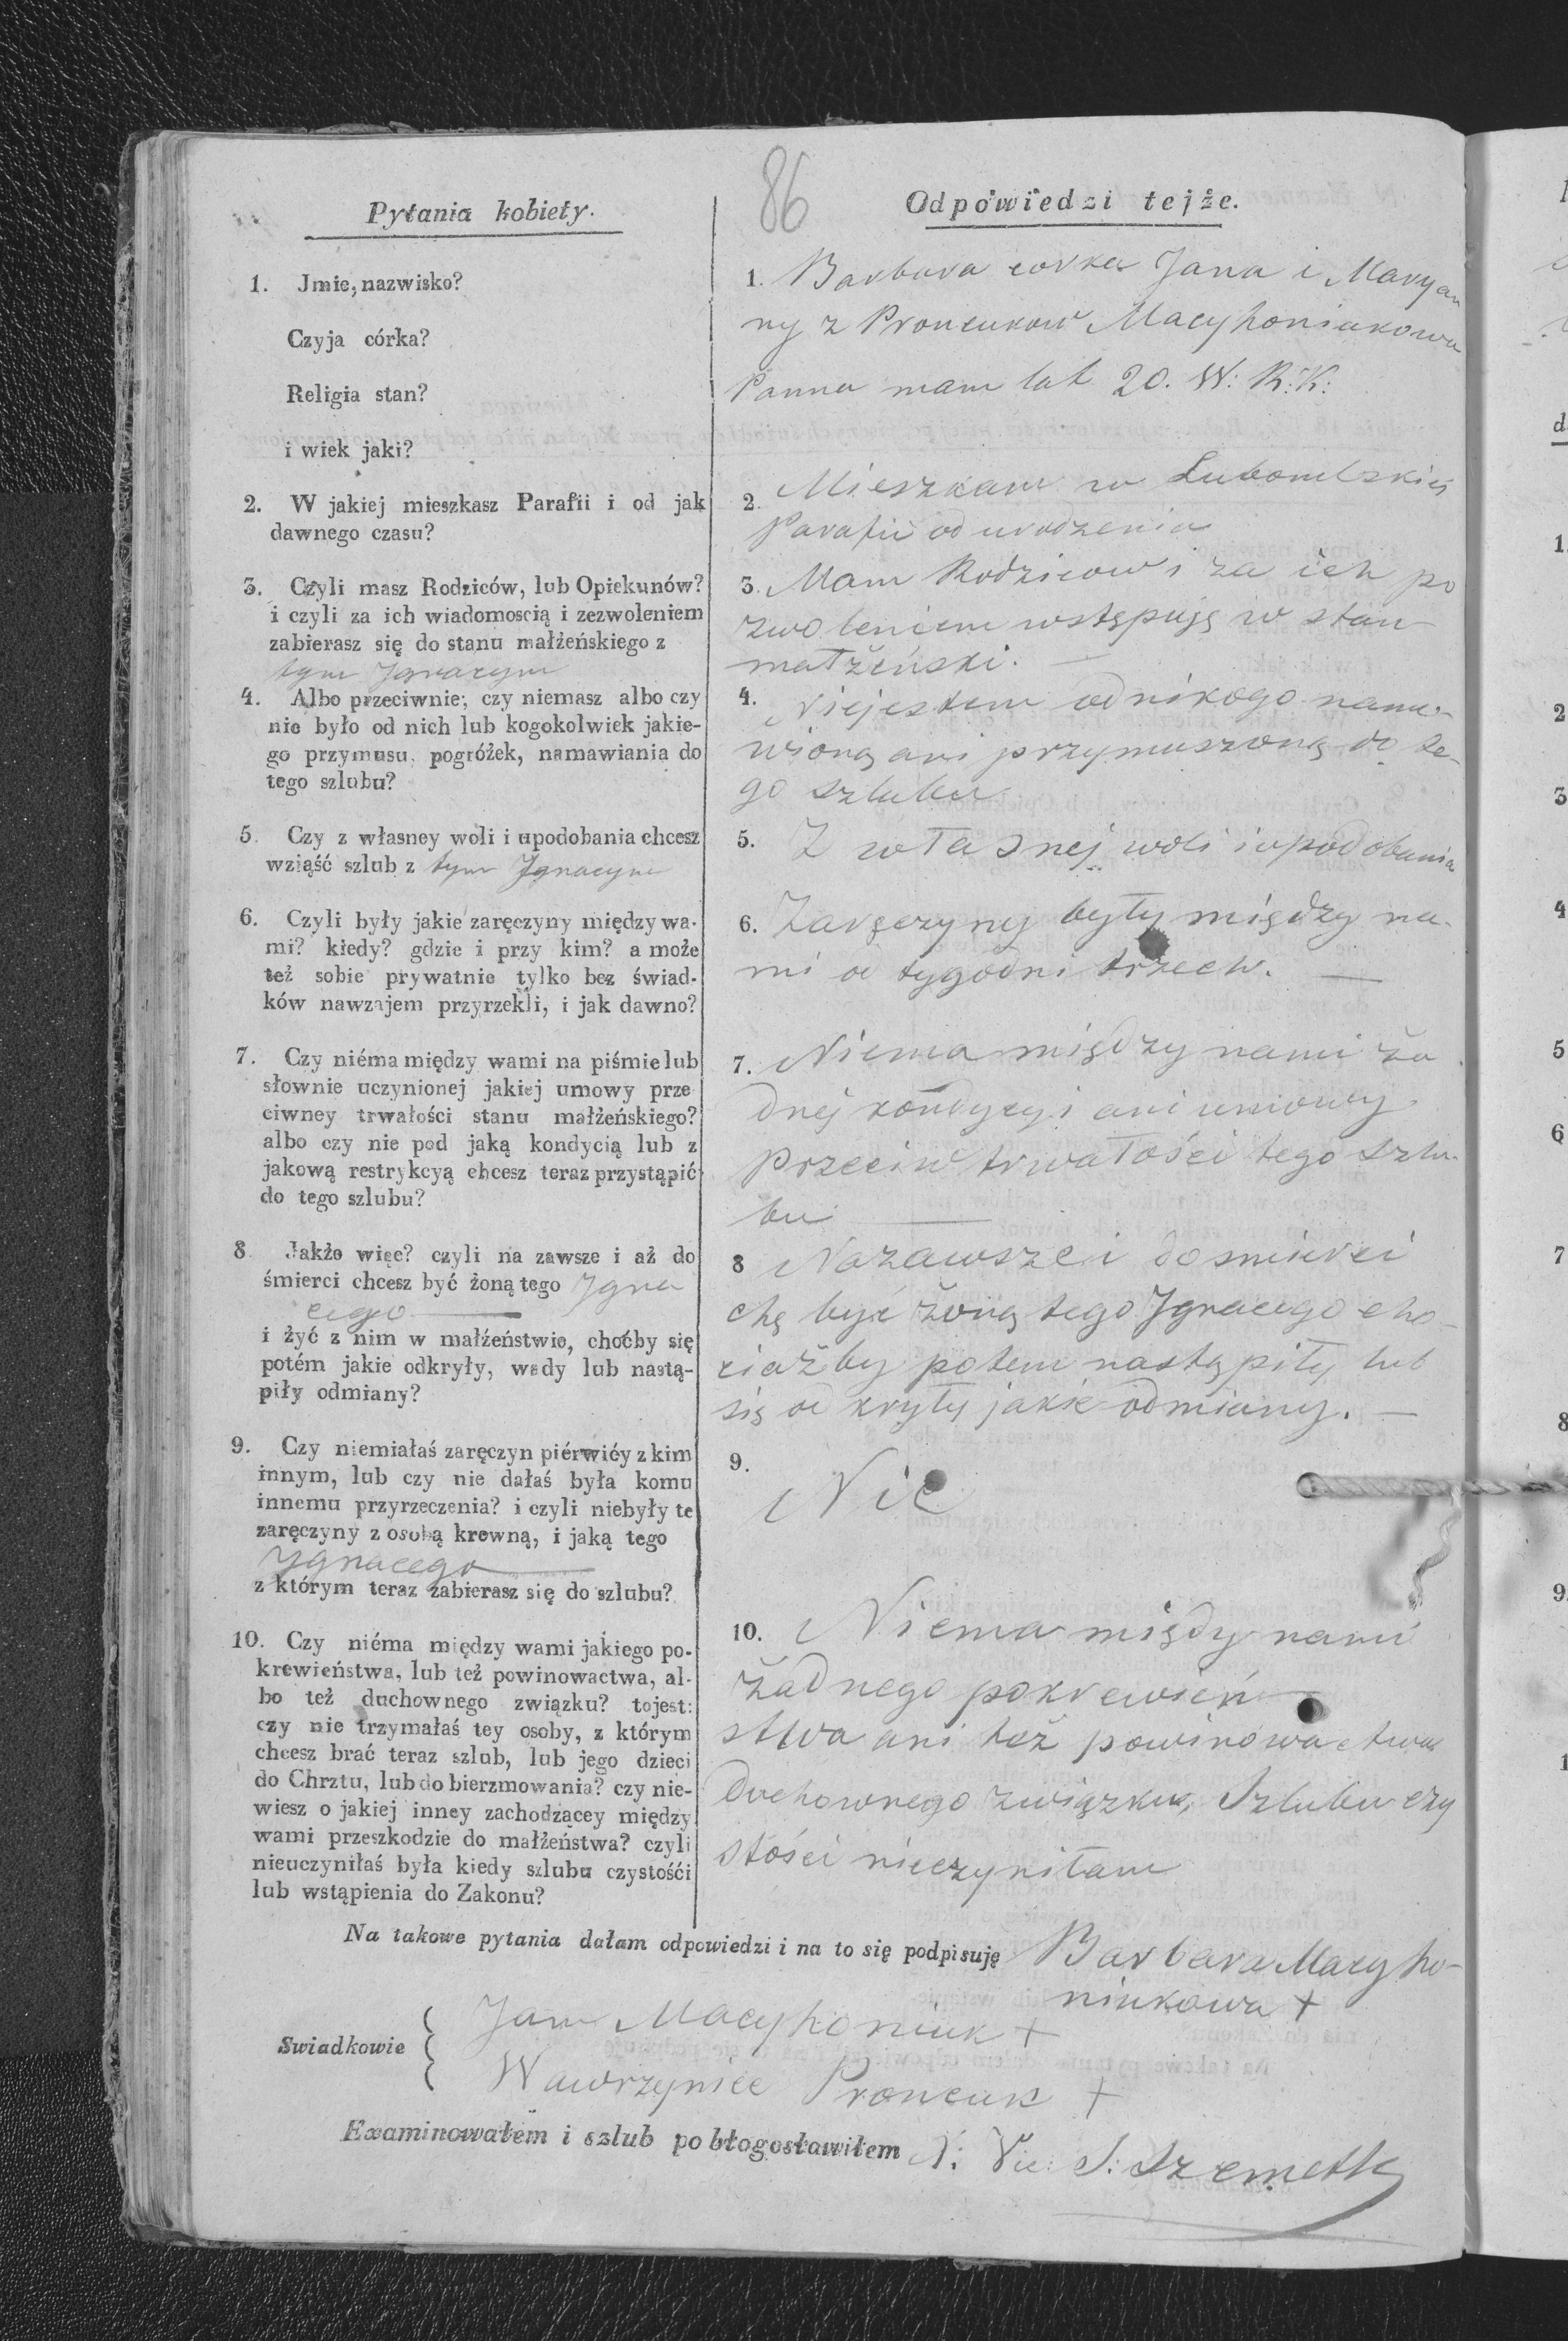 86
Pytania kobiety.
1. Jmie, nazwisko?
Czyja córka?
Religia stan?
i wiek jaki?
2. W jakiej mieszkasz Parafii i od jak
dawnego czasu?
3. Czyli masz Rodziców, lub Opiekunów?
i czyli za ich wiadomoscią i zezwoleniem
zabierasz się do stanu małżeńskiego z
tym Jgnacym
4. Albo przeciwnie; czy niemasz albo czy
nie było od nich lub kogokolwiek jakie-
go przymusu, pogróżek, namawiania do
tego szlubu?
5. Czy z własney woli i upodobania chcesz
wziąść szlub z tym Jgnacym
6. Czyli były jakie zaręczyny między wa-
mi? kiedy? gdzie i przy kim? a może
też sobie prywatnie tylko bez świad-
ków nawzajem przyrzekli, i jak dawno?
7. Czy niéma między wami na piśmie lub
słownie uczynionej jakiej umowy prze
ciwney trwałości stanu małżeńskiego?
albo czy nie pod jaką kondycią lub z
jakową restrykcyą chcesz teraz przystąpić
do tego szlubu?
8 Jakże więc? czyli na zawsze i aż do
śmierci chcesz być żoną tego Jgna
cego
i żyć z nim w małżeństwie, choćby się
potém jakie odkryły, wady lub nastą-
piły odmiany?
9. Czy niemiałaś zaręczyn piérwiéy z kim
innym, lub czy nie dałaś była komu
innemu przyrzeczenia? i czyli niebyły te
zaręczyny z osobą krewną, i jaką tego
Jgnacego
z którym teraz zabierasz się do szlubu?
10. Czy niéma między wami jakiego po-
krewieństwa, lub też powinowactwa, al-
bo też duchownego związku? tojest:
czy nie trzymałaś tey osoby, z którym
chcesz brać teraz szlub, lub jego dzieci
do Chrztu, lub do bierzmowania? czy nie-
wiesz o jakiej inney zachodzącey między
wami przeszkodzie do małżeństwa? czyli
nieuczyniłaś była kiedy szlubu czystośći
lub wstąpienia do Zakonu?
Odpowiedzi tejże.
1. Barbara corka Jana i Maryan
ny z Proncukow Macyhoniukowa
Panna mam lat 20. W: R: K:
2. Mieszkam w Lubomlskiej
Parafii od urodzenia
3. Mam Rodzicow i za ich po
zwoleniem wstępuję w stan
małżeński.
4. Niejestem od nikogo namó-
wioną ani przymuszoną do te-
go szlubu
5. Z własnej woli i upodobania
6. Zaręczyny były między na-
mi od tygodni trzech.
7. Niema między nami ża
dnej kondycyi ani umowy
przeciw trwałości tego szlu-
bu
8 Nazawsze i do smierci
chę być żoną tego Jgnacego cho-
ciażby potem nastąpiły lub
się od kryły jakie odmiany.
9. Nie
10. Niema międy nami
żadnego pokrewień
stwa ani też powinowactwa
duchownego związku, Szlubu czy
stości nieczyniłam
Na takowe pytania dałam odpowiedzi i na to się podpisuję Barbara Macyho-
niukowa +
Swiadkowie { Jan Macyhoniuk +
Wawrzyniec Proncuk +
Examinowałem i szlub pobłogosławiłem